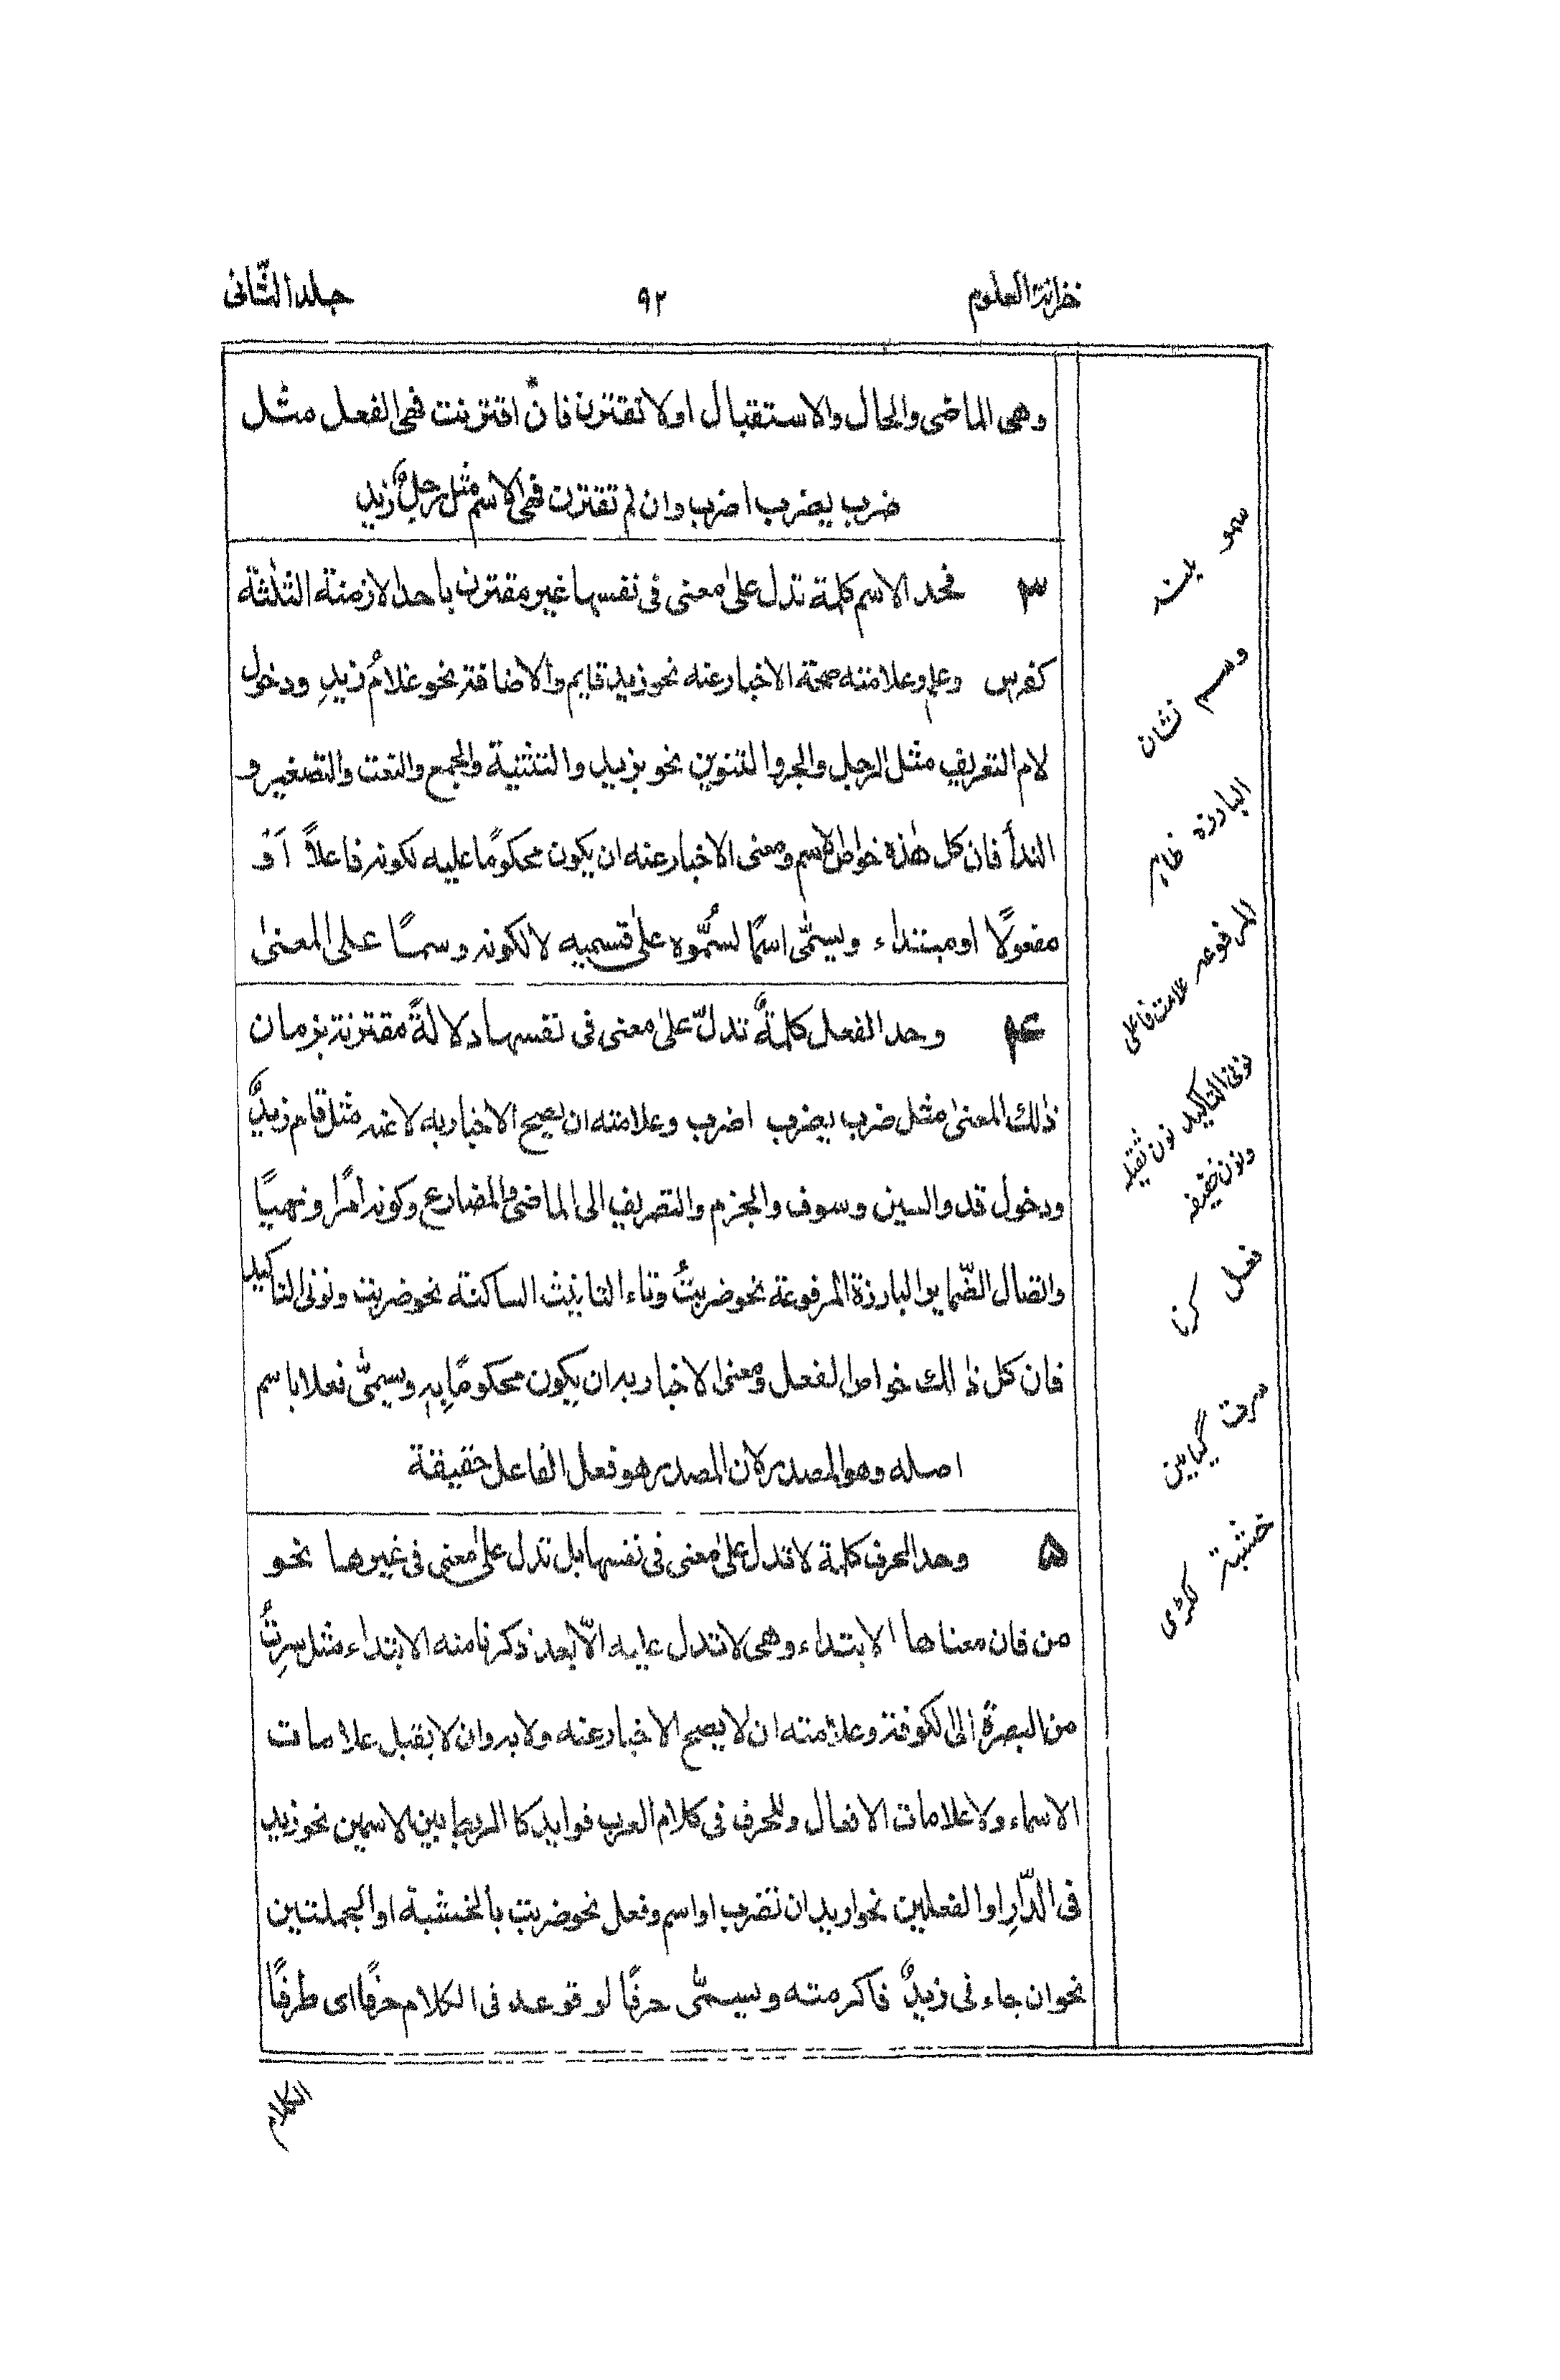 خزانة العلوم
٩٢
جلد الثّانی
وهی الماضی والحال والاستقبال اولا تقترن فان اقترنت فهی الفعل مثل
ضرب یضرب اضرب وان لم تقترن فهی الاسم مثل رجلٌ زید
٣ فحد الاسم کلمة تدل علیٰ معنی فی نفسها غیر مقترن باحد الازمنة الثلٰثة
کفرس وعلم وعلامته صحة الاخبار عنه نحو زید قایم والاضافة نحو غلامُ زیدٍ ودخول
لام التعریف مثل الرجل والجر والتنوین نحو بزید والتثنیة والجمع والنعت والتصغیر و
النداء فان کل هٰذه خواص الاسم ومعنی الاخبار عنه ان یکون محکومًا علیه لکونه فاعلاً اَوْ
مفعولًا او مبتداء ویسمّٰی اسمًا لسُمُّوه علیٰ قسمیه لا لکونه وسمًا علی المعنیٰ
۴ وحد الفعل کلمةٌ تدلّ علیٰ معنی فی نفسها دلالةً مقترنة بزمان
ذٰلك المعنیٰ مثل ضرب یضرب اضرب وعلامته ان یصح الاخبار به لا عنه مثل قام زیدٌ
ودخول قد والسین وسوف والجزم والتصریف الی الماضی والمضارع وکونه امرًا ونهیًا
واتصال الضّمایر البارزة المرفوعة نحو ضربتُ وتاء التانیث الساکنة نحو ضربت ونونی التاکید
فان کل ذالك خواص الفعل ومعنی الاخبار به ان یکون محکومًا بِهٖ ویسمّٰی فعلا باسم
اصله وهو المصدر لان المصدر هو فعل الفاعل حقیقة
۵ وحد الحرف کلمة لا تدل علیٰ معنی فی نفسها بل تدل علیٰ معنی فی غیرها نحو
من فان معناها الابتداء وهی لا تدل علیه الّا بعد ذکر ما منه الابتداء مثل سِرتُ
من البصرة الی الکوفة وعلامته ان لا یصح الاخبار عنه ولا به وان لا یقبل علامات
الاسماء ولا علامات الافعال وللحرف فی کلام العرب فواید کالربط بین الاسمین نحو زید
فی الدّارِ او الفعلین نحو ارید ان تضرب او اسم وفعل نحو ضربت بالخشبة او الجملتین
نحو ان جاءنی زیدٌ فاکرمته ویسمّٰی حرفًا لوقوعه فی الکلام حرفًا ای طرفًا
سمو
وسم نشان
البارزه ظاہر
المرفوعه علامت فاعلی
نونی التاکید نون ثقیله
ونون خفیفه
فعل کرنا
سرت گیا مین
خشبة لکڑی
الکلام